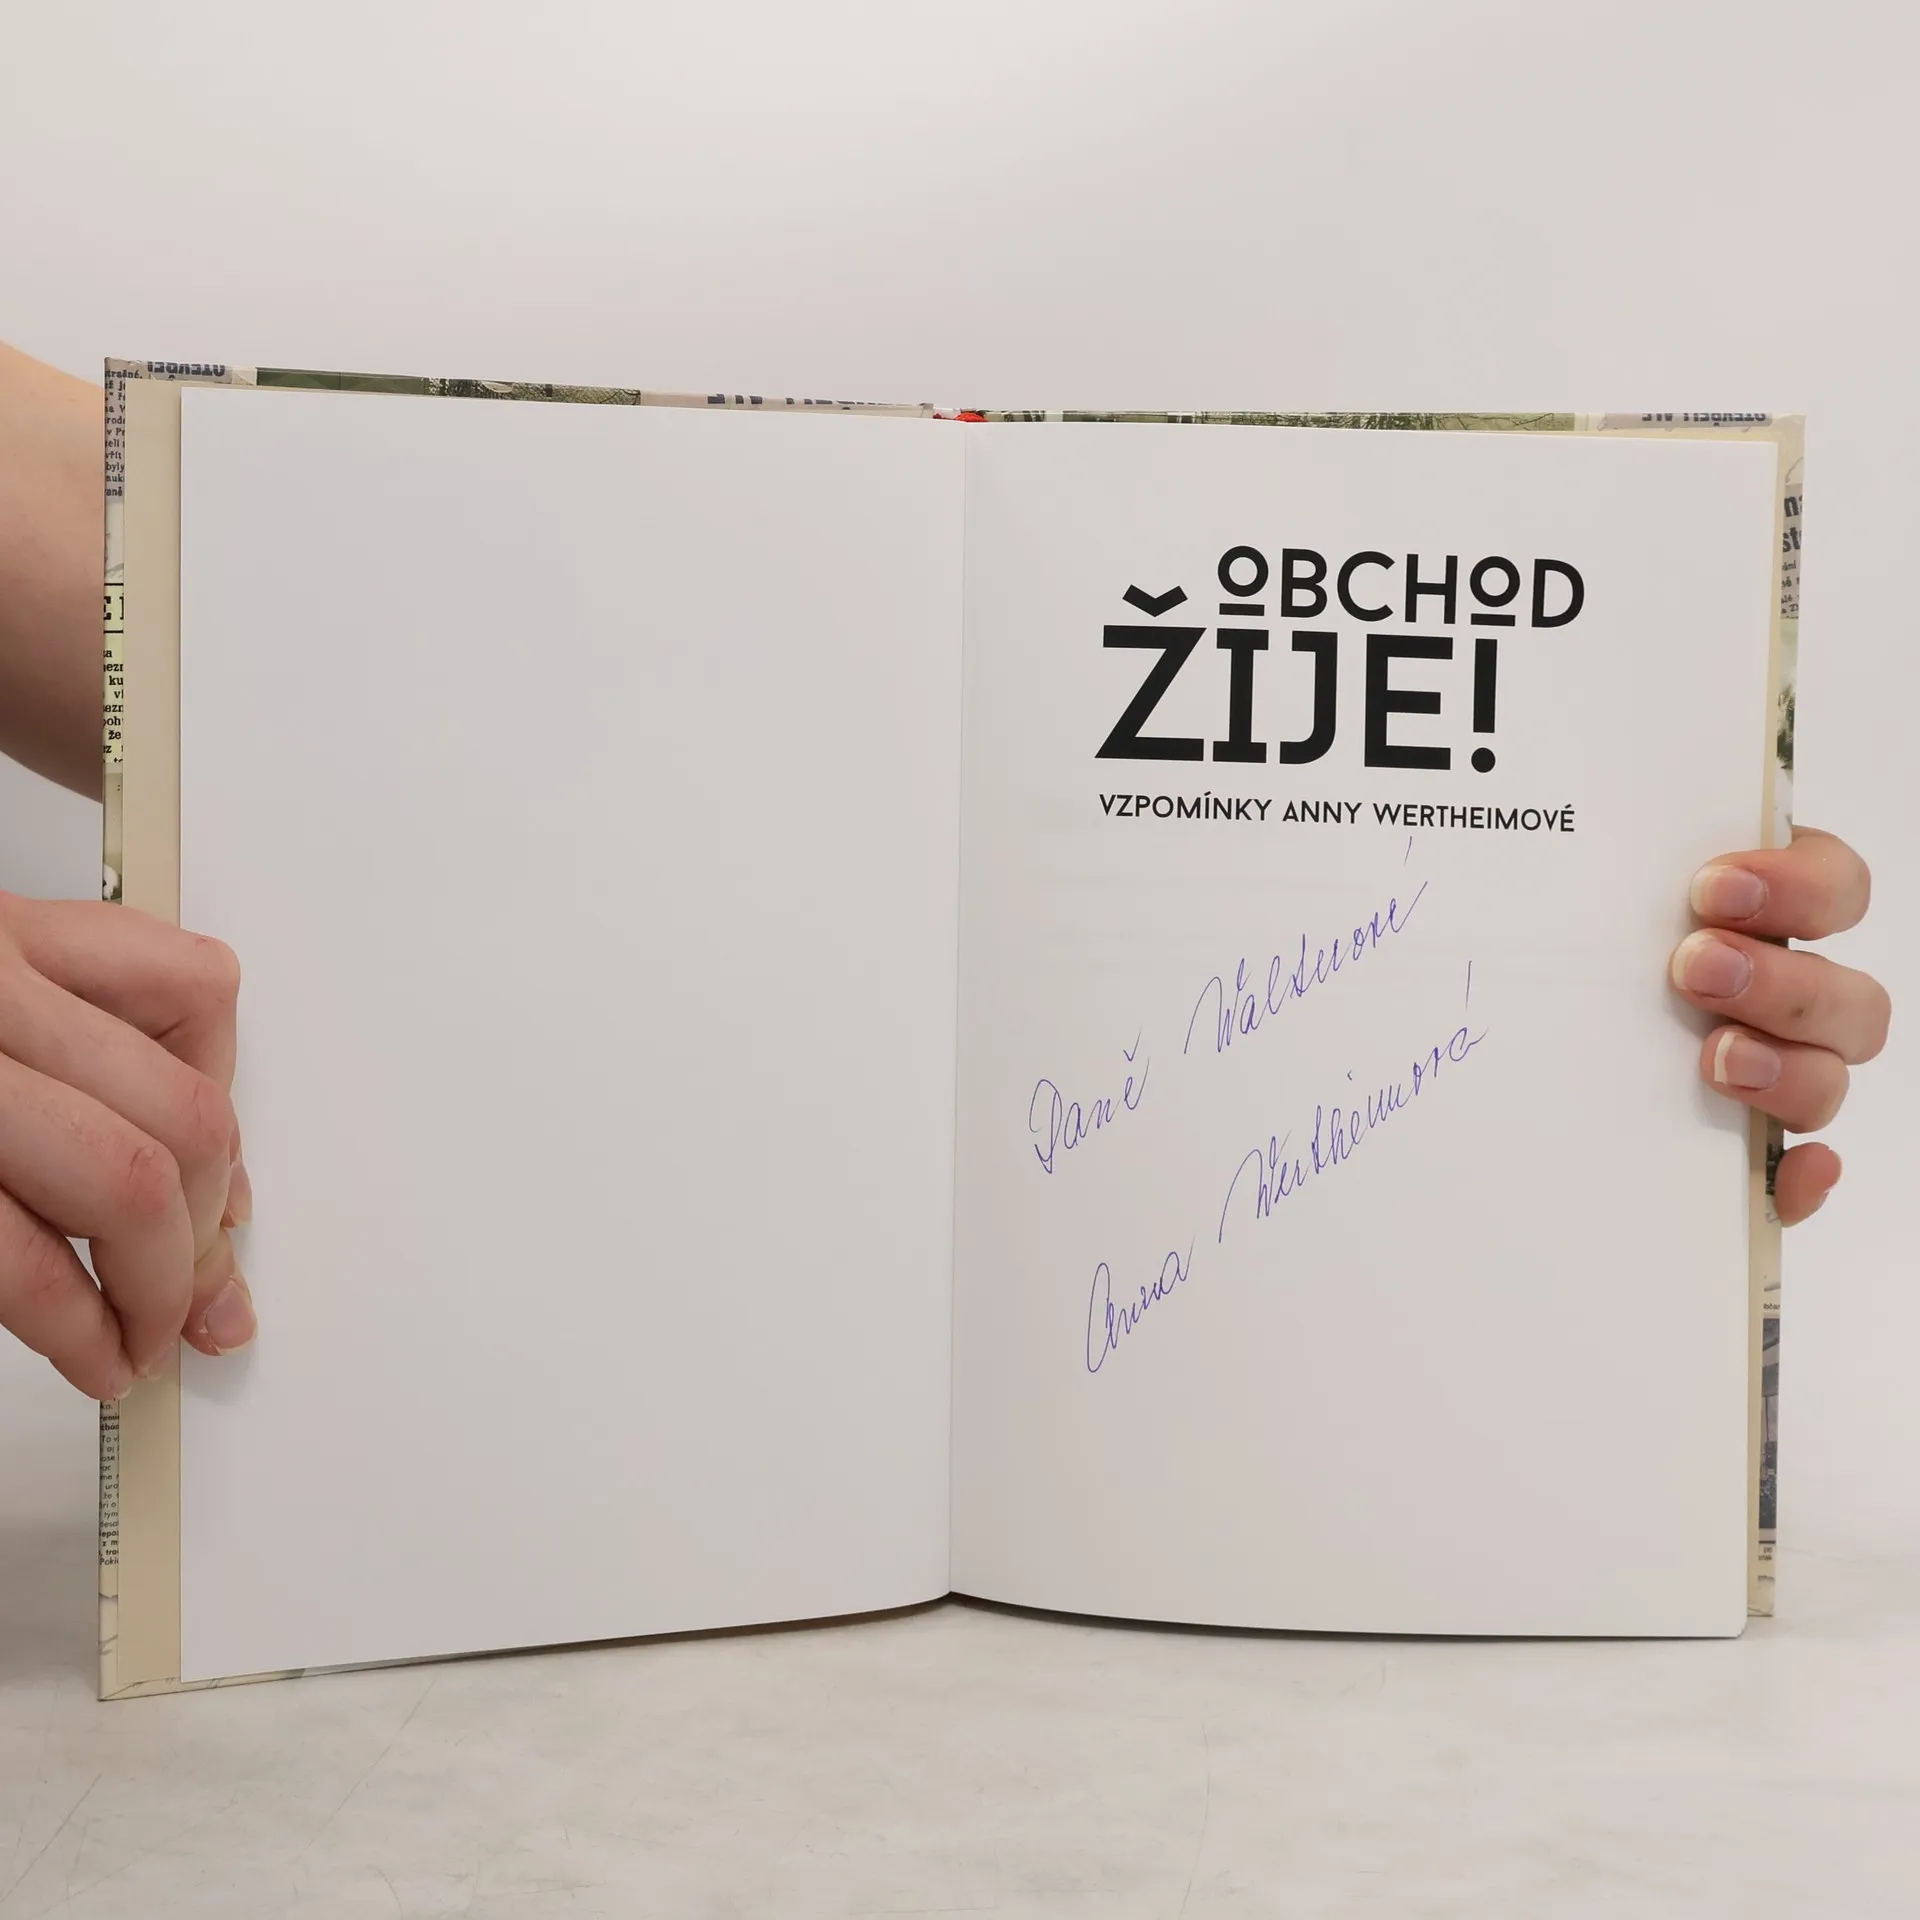 OBCHOD
ŽIJE!
VZPOMÍNKY ANNY WERTHEIMOVÉ
Daně Walterové
Anna Wertheimová